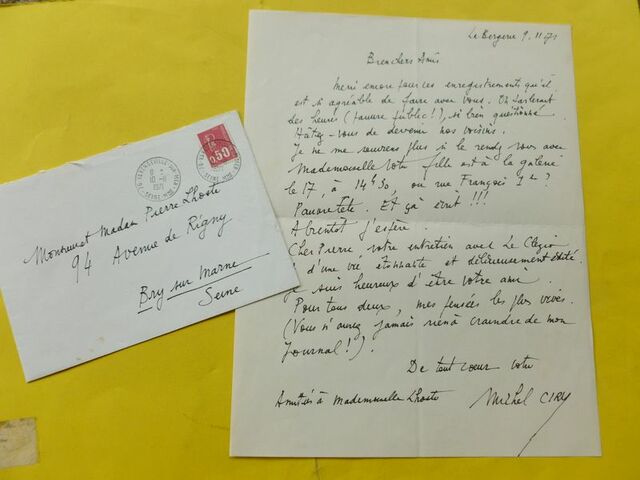 Monsieur et Madam Pierre Lhoste
94 Avenue de Rigny
Bry sur Marne
Seine
0.50
10-11
1971
VARENGEVILLE-SUR-MER
SEINE-MME
La Bergerie 9.11.71
Bien chers Amis
Merci encore pour ces enregistrements qu'il
est si agréable de faire avec vous. On parlerait
des heures (pauvre public!), si bien questionné
Hâtez-vous de devenir nos voisins.
Je ne me souviens plus si le rendez vous avec
Mademoiselle votre fille est à la galerie
le 17, à 14h30, ou rue François Ier?
Pauvre tête. Et ça écrit!!!
A bientôt j'espère.
Cher Pierre votre entretien avec Le Clézio
d'une vie étonnante et délicieusement
Je suis heureux d'être votre ami.
Pour tous deux, mes pensées les plus vives.
(Vous n'aurez jamais rien à craindre de mon
Journal!).
De tout cœur votre
Amitiés à Mademoiselle Lhoste
Michel CIRY